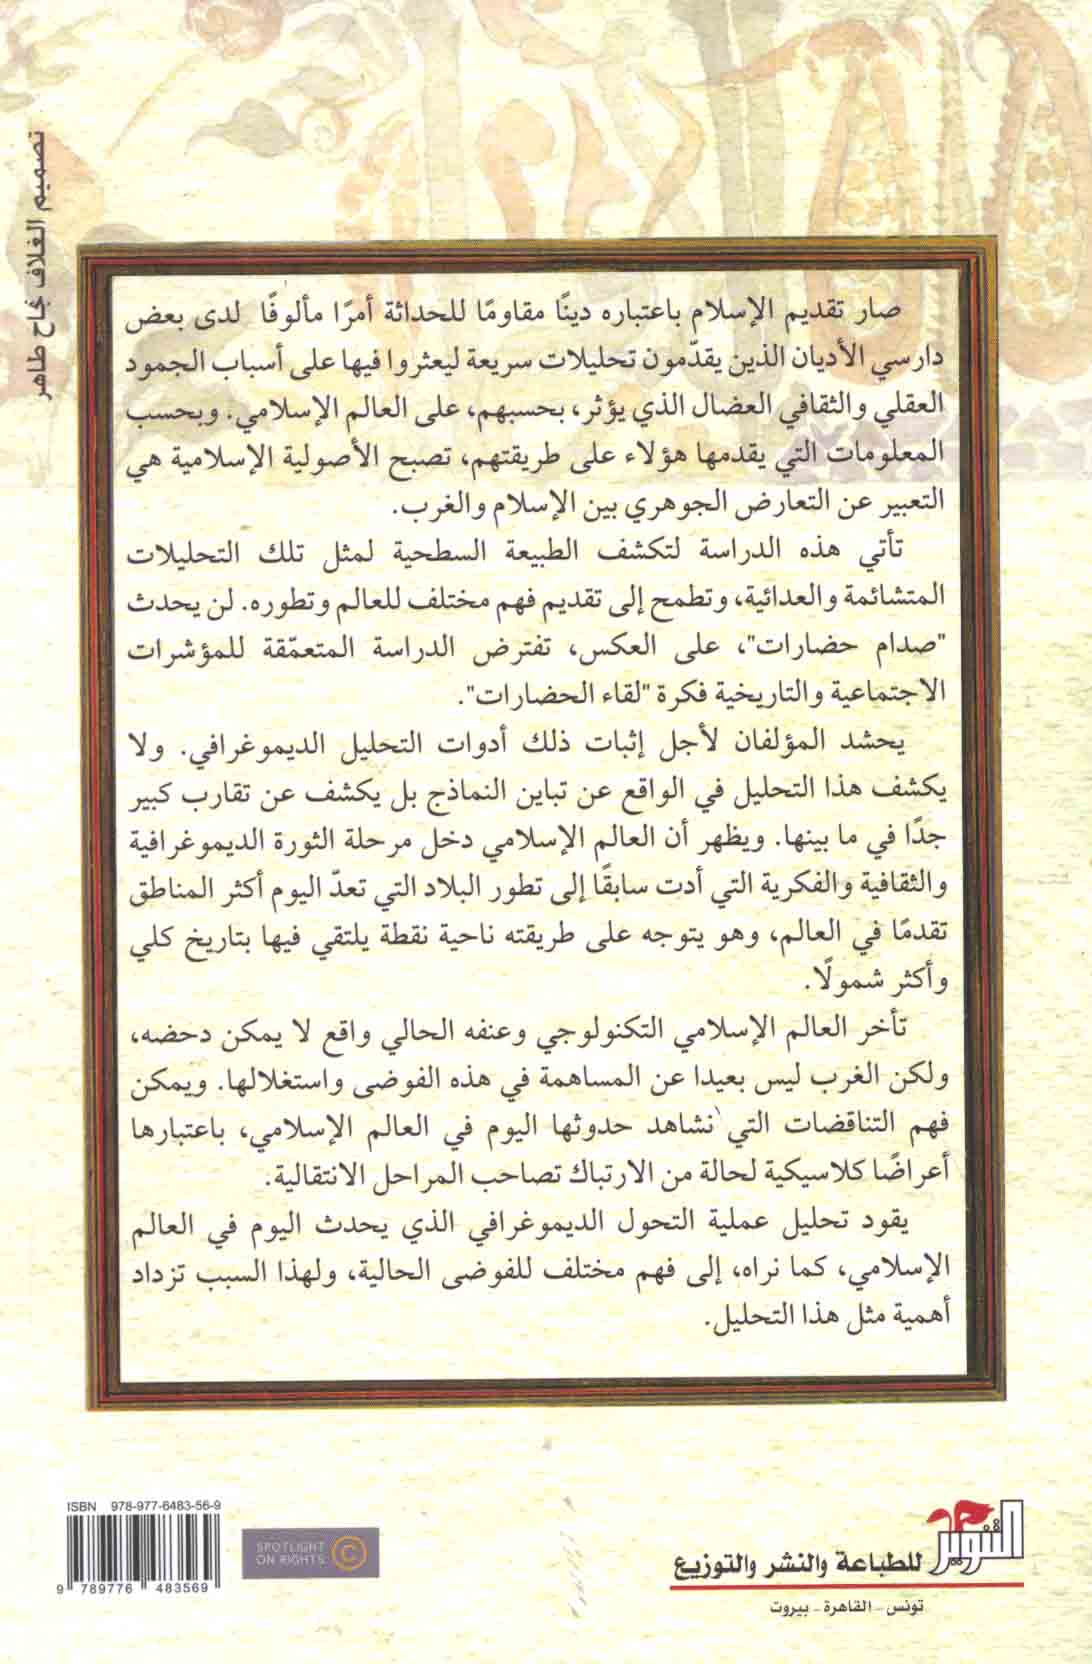 تصميم الغلاف نجاح طاهر
صار تقديم الإسلام باعتباره دينًا مقاومًا للحداثة أمرًا مألوفًا لدى بعض
دارسي الأديان الذين يقدّمون تحليلات سريعة ليعثروا فيها على أسباب الجمود
العقلي والثقافي العضال الذي يؤثر، بحسبهم، على العالم الإسلامي. وبحسب
المعلومات التي يقدمها هؤلاء على طريقتهم، تصبح الأصولية الإسلامية هي
التعبير عن التعارض الجوهري بين الإسلام والغرب.
تأتي هذه الدراسة لتكشف الطبيعة السطحية لمثل تلك التحليلات
المتشائمة والعدائية، وتطمح إلى تقديم فهم مختلف للعالم وتطوره. لن يحدث
"صدام حضارات"، على العكس، تفترض الدراسة المتعمّقة للمؤشرات
الاجتماعية والتاريخية فكرة "لقاء الحضارات".
يحشد المؤلفان لأجل إثبات ذلك أدوات التحليل الديموغرافي. ولا
يكشف هذا التحليل في الواقع عن تباين النماذج بل يكشف عن تقارب كبير
جدًا في ما بينها. ويظهر أن العالم الإسلامي دخل مرحلة الثورة الديموغرافية
والثقافية والفكرية التي أدت سابقًا إلى تطور البلاد التي تعدّ اليوم أكثر المناطق
تقدمًا في العالم، وهو يتوجه على طريقته ناحية نقطة يلتقي فيها بتاريخ كلي
وأكثر شمولًا.
تأخر العالم الإسلامي التكنولوجي وعنفه الحالي واقع لا يمكن دحضه،
ولكن الغرب ليس بعيدا عن المساهمة في هذه الفوضى واستغلالها. ويمكن
فهم التناقضات التي نشاهد حدوثها اليوم في العالم الإسلامي، باعتبارها
أعراضًا كلاسيكية لحالة من الارتباك تصاحب المراحل الانتقالية.
يقود تحليل عملية التحول الديموغرافي الذي يحدث اليوم في العالم
الإسلامي، كما نراه، إلى فهم مختلف للفوضى الحالية، ولهذا السبب تزداد
أهمية مثل هذا التحليل.
ISBN 978-977-6483-56-9
9 789776 483569
SPOTLIGHT
ON RIGHTS
©
التنوير
للطباعة والنشر والتوزيع
تونس - القاهرة - بيروت